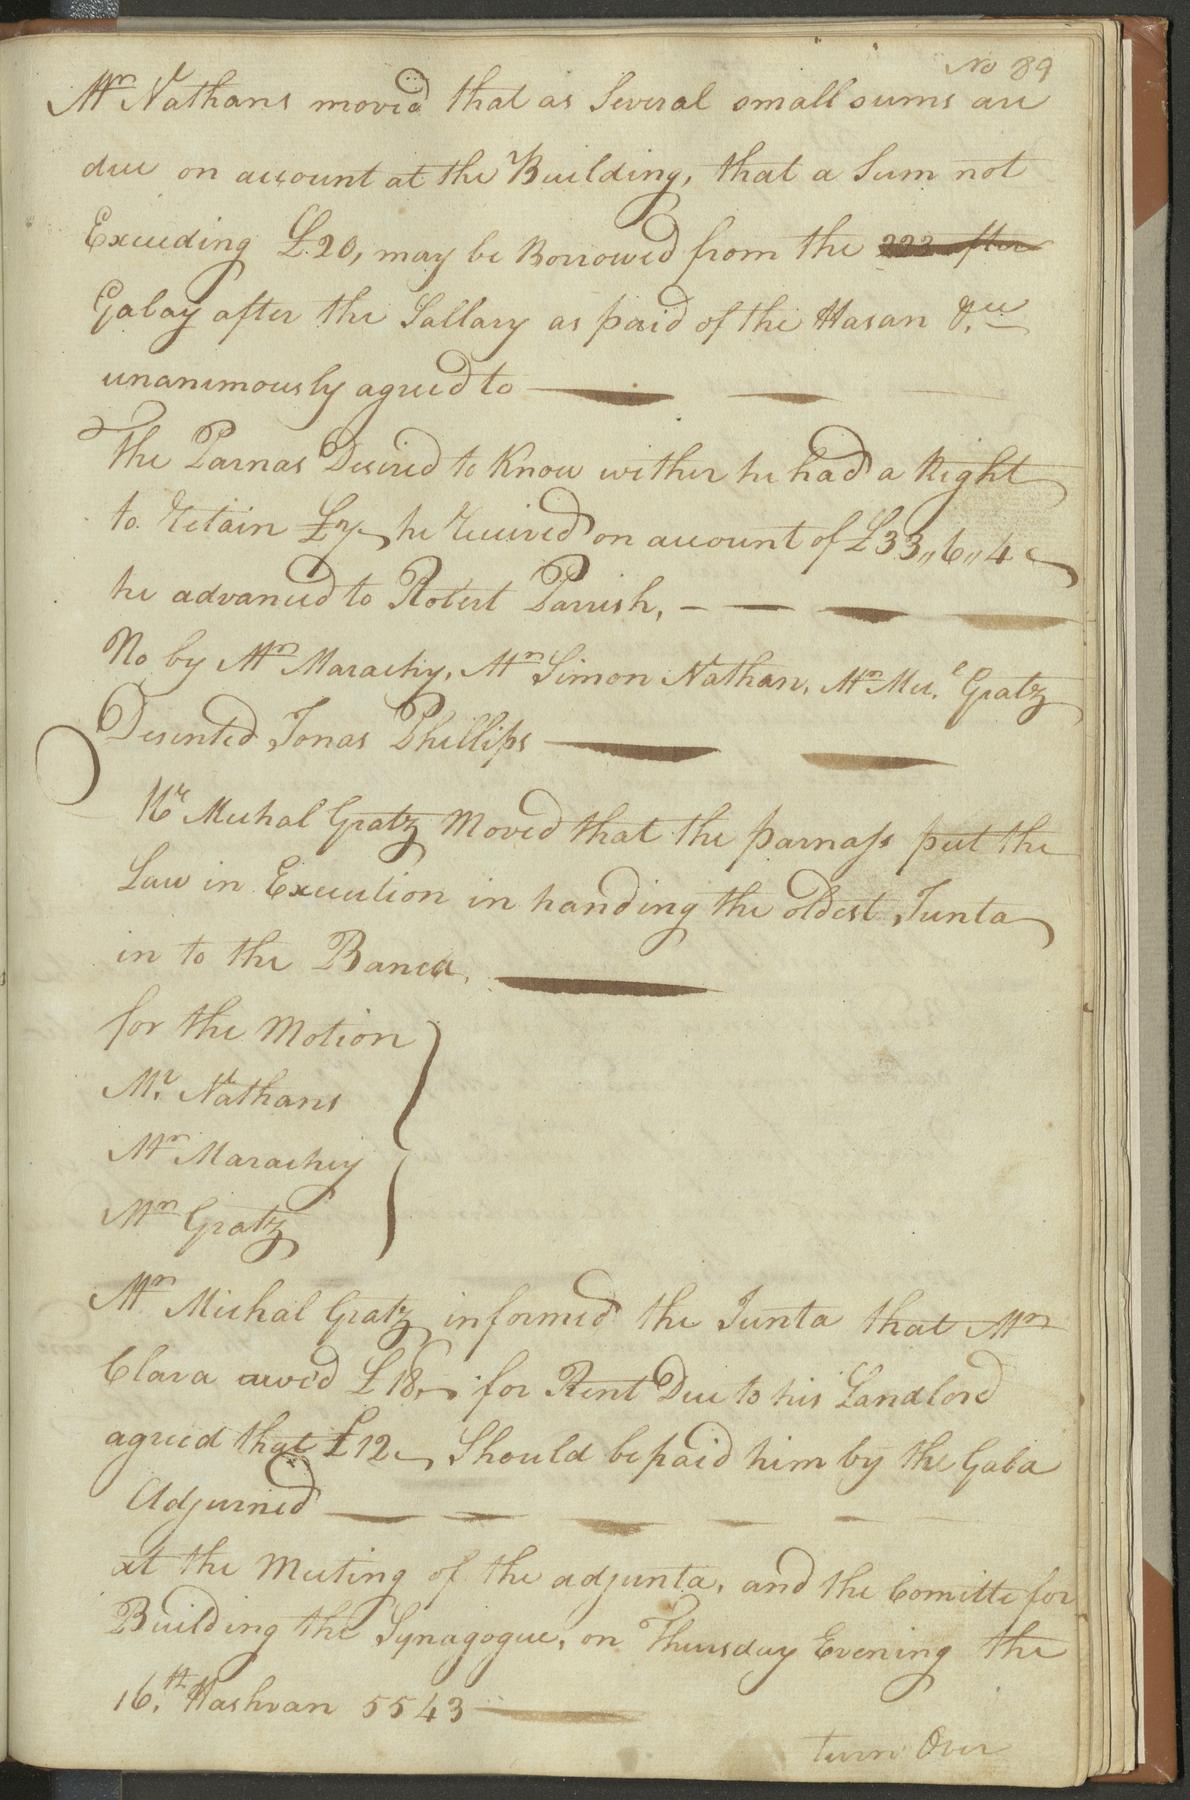 No 89
Mr Nathans moved that as Several small sums are
due on account at the Building, that a Sum not
Exceeding £20, may be Borrowed from the 223 after
Gabay after the Sallary as paid of the Hasan &ce
unanimously agreed to
The Parnas Desired to Know wither he had a Right
to Retain £7 he Received on account of £33,,6,,4
he advanced to Robert Parrish,
No by Mr Marachy, Mr Simon Nathan, Mr Mic.l Gratz
Desented Jonas Phillips
Mr Michal Gratz Moved that the parnass put the
Law in Execution in handing the oldest Junta
in to the Banca,
for the Motion
Mr. Nathans
Mr Marachy
Mr Gratz
Mr Michal Gratz informed the Junta that Mr
Clara awed £18, for Rent Due to his Landlord
agreed that £12 Should be paid him by the Gaba
Adjurned
at the Meeting of the adjunta, and the Comitte for
Building the Synagogue, on Thursday Evening the
16.th Hashvan 5543
turn Over